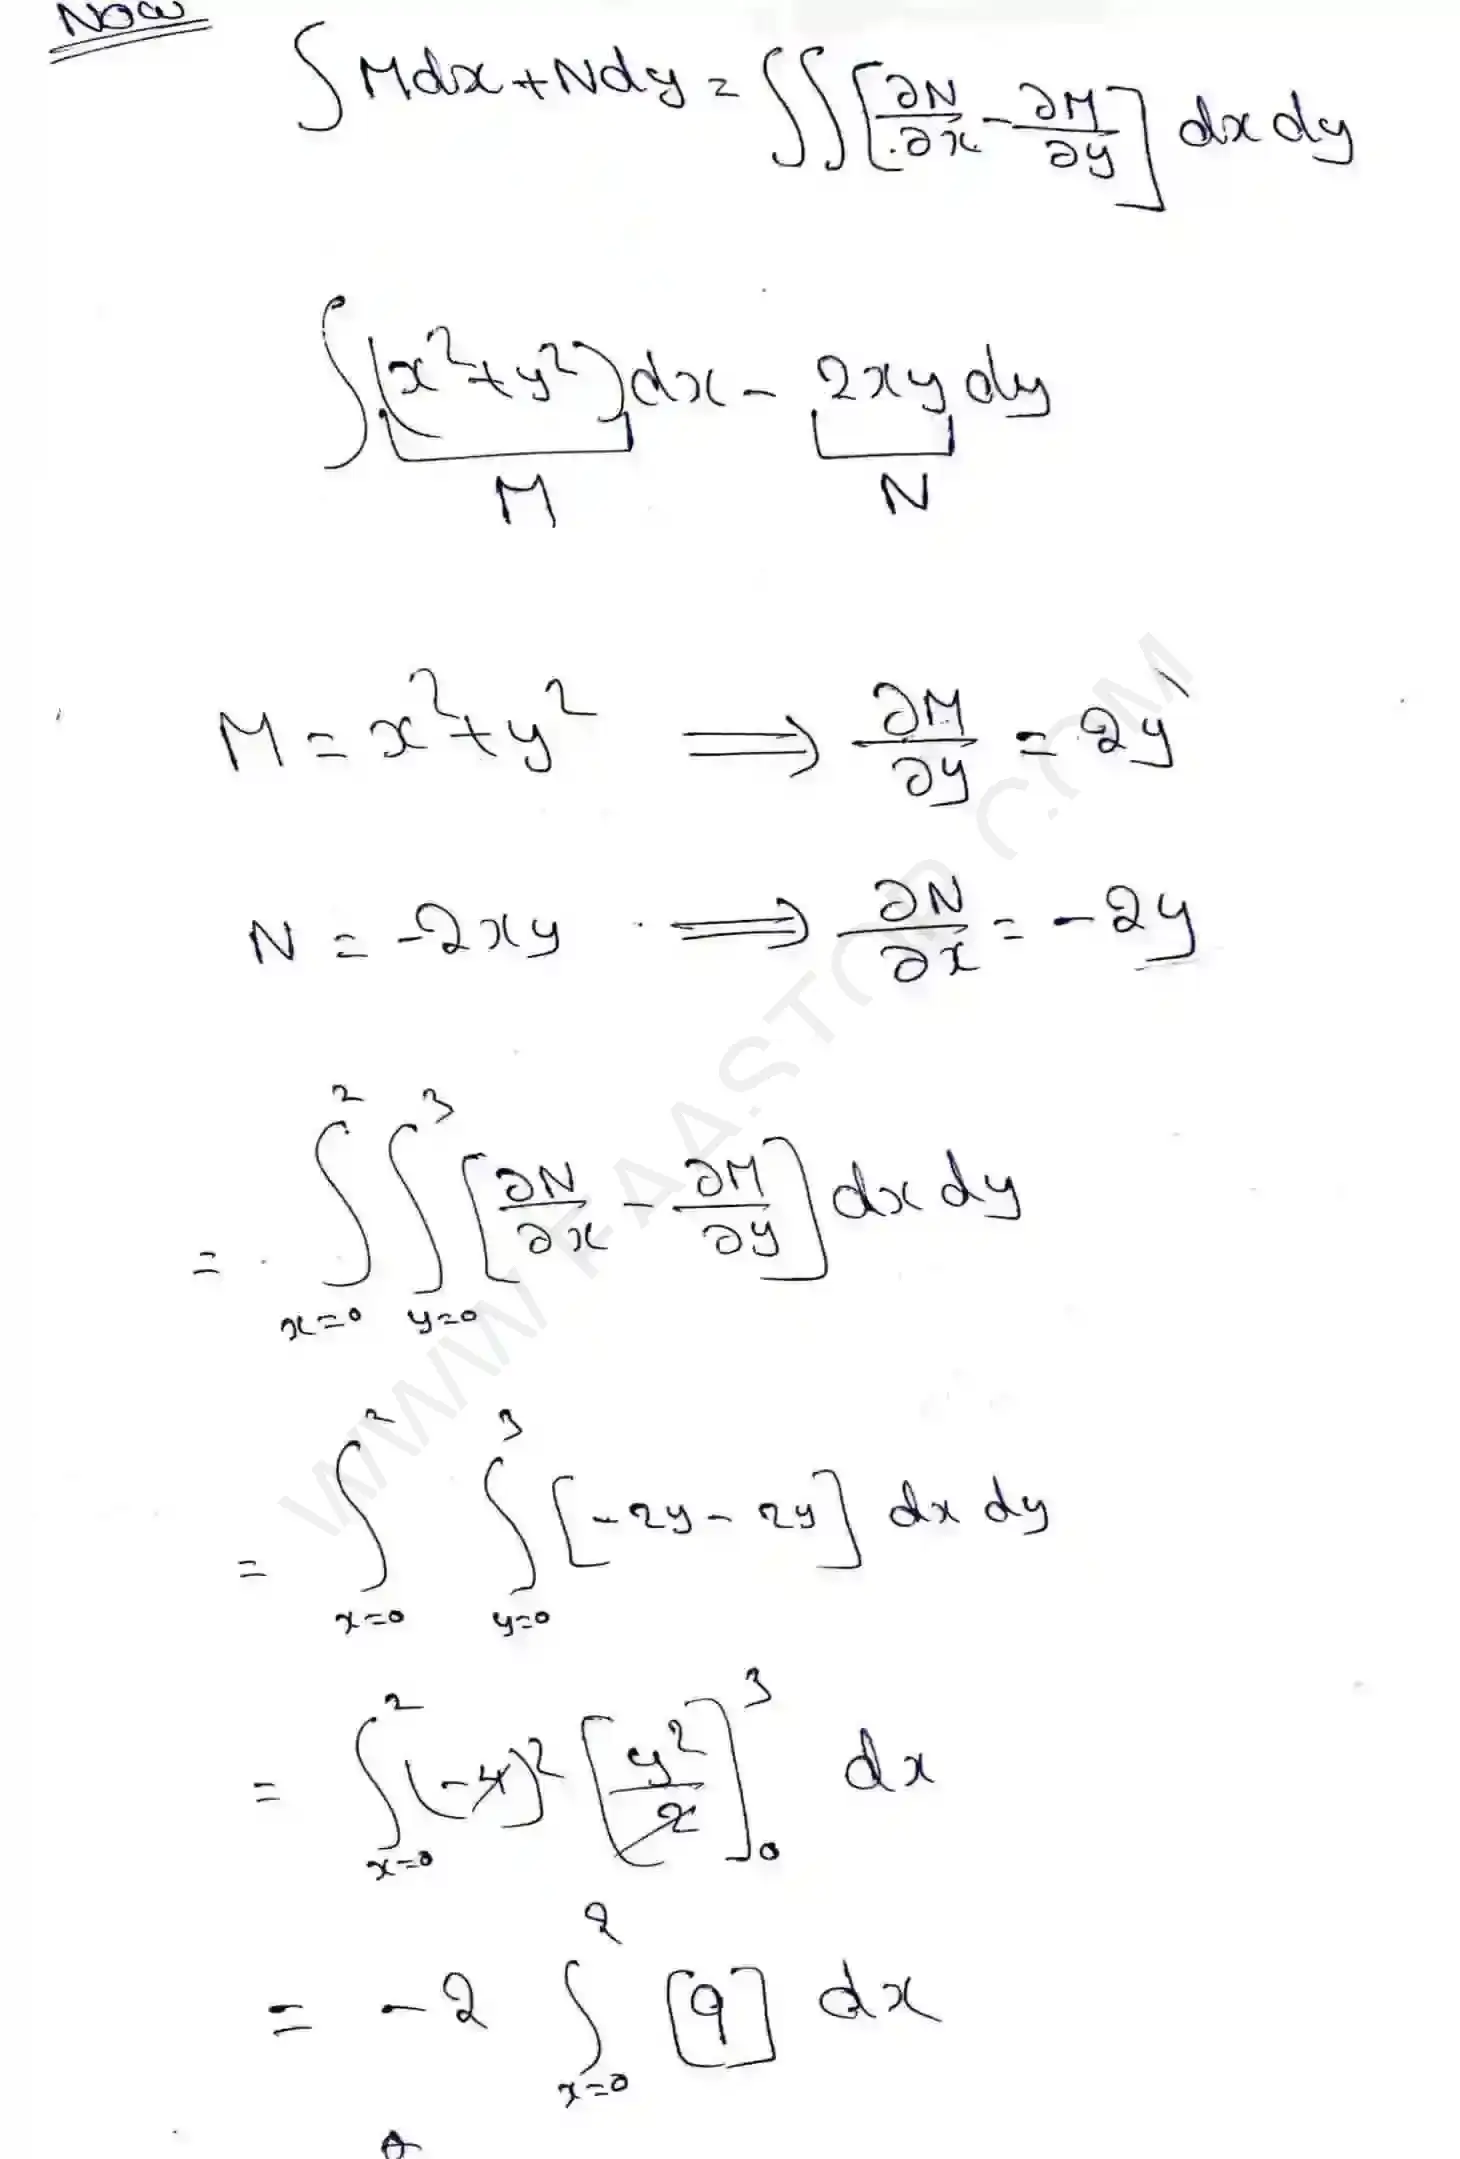 Now
∫ Mdx + Ndy = ∫∫ [∂N/∂x - ∂M/∂y] dx dy
∫ (x²+y²) dx - 2xy dy
M N
M = x²+y² ⟹ ∂M/∂y = 2y
N = -2xy ⟹ ∂N/∂x = -2y
= ∫_{x=0}^{2} ∫_{y=0}^{3} [∂N/∂x - ∂M/∂y] dx dy
= ∫_{x=0}^{2} ∫_{y=0}^{3} [-2y - 2y] dx dy
= ∫_{x=0}^{2} (-4)² [y²/2]_0^3 dx
= -2 ∫_{x=0}^{2} [9] dx
WWW.FAASTOP.COM